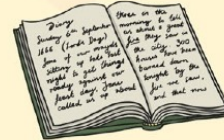 Diary
Sunday 6th September
1666 (Lords Day)
Some of our maids
sitting up late last
night to get things
ready against our
feast today, Jane
called us up about
three in the
morning, to tell
us about a great
fire they saw in
the city. 300
houses have been
burned down
tonight by the
fire we saw,
and that now